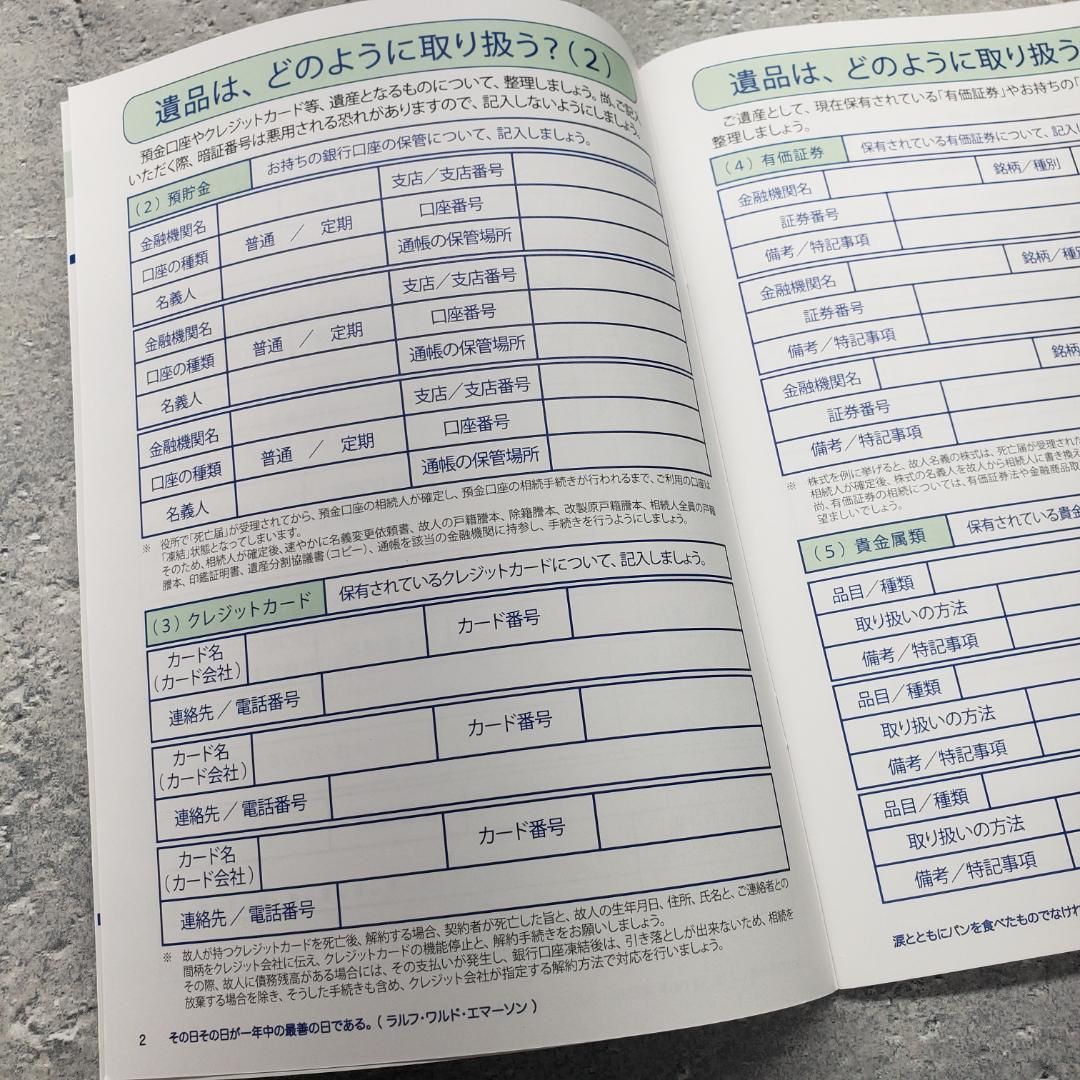 遺品は、どのように取り扱う?(2)
預金口座やクレジットカード等、遺産となるものについて、整理しましょう。尚、ご記入
いただく際、暗証番号は悪用される恐れがありますので、記入しないようにしましょう。
(2)預貯金 お持ちの銀行口座の保管について、記入しましょう。
金融機関名 支店/支店番号
口座の種類 普通 / 定期 口座番号
名義人 通帳の保管場所
金融機関名 支店/支店番号
口座の種類 普通 / 定期 口座番号
名義人 通帳の保管場所
金融機関名 支店/支店番号
口座の種類 普通 / 定期 口座番号
名義人 通帳の保管場所
※ 役所で「死亡届」が受理されてから、預金口座の相続人が確定し、預金口座の相続手続きが行われるまで、ご利用の口座は
「凍結」状態となってしまいます。
そのため、相続人が確定後、速やかに名義変更依頼書、故人の戸籍謄本、除籍謄本、改製原戸籍謄本、相続人全員の戸籍
謄本、印鑑証明書、遺産分割協議書(コピー)、通帳を該当の金融機関に持参し、手続きを行うようにしましょう。
(3)クレジットカード 保有されているクレジットカードについて、記入しましょう。
カード名
(カード会社) カード番号
連絡先/電話番号
カード名
(カード会社) カード番号
連絡先/電話番号
カード名
(カード会社) カード番号
連絡先/電話番号
※ 故人が持つクレジットカードを死亡後、解約する場合、契約者が死亡した旨と、故人の生年月日、住所、氏名と、ご連絡者との
間柄をクレジット会社に伝え、クレジットカードの機能停止と、解約手続きをお願いしましょう。
その際、故人に債務残高がある場合には、その支払いが発生し、銀行口座凍結後は、引き落としが出来ないため、相続を
放棄する場合を除き、そうした手続きも含め、クレジット会社が指定する解約方法で対応を行いましょう。
2 その日その日が一年中の最善の日である。(ラルフ・ワルド・エマーソン)
遺品は、どのように取り扱う
ご遺産として、現在保有されている「有価証券」やお持ちの「
整理しましょう。
(4)有価証券 保有されている有価証券について、記入し
金融機関名 銘柄/種別
証券番号
備考/特記事項
金融機関名 銘柄/種別
証券番号
備考/特記事項
金融機関名 銘柄
証券番号
備考/特記事項
※ 株式を例に挙げると、故人名義の株式は、死亡届が受理された
相続人が確定後、株式の名義人を故人から相続人に書き換え
尚、有価証券の相続については、有価証券法や金融商品取
望ましいでしょう。
(5)貴金属類 保有されている貴金
品目/種類
取り扱いの方法
備考/特記事項
品目/種類
取り扱いの方法
備考/特記事項
品目/種類
取り扱いの方法
備考/特記事項
涙とともにパンを食べたものでなけれ